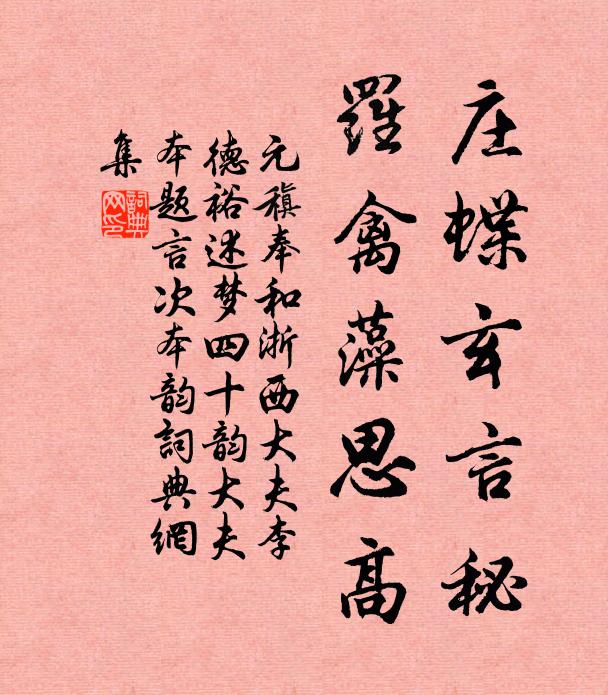 庄蝶玄言秘
羅禽藻思高
元稹奉和浙西大夫李
德裕述梦四十韵大夫
本题言次本韵詞典網
集
詞典網印